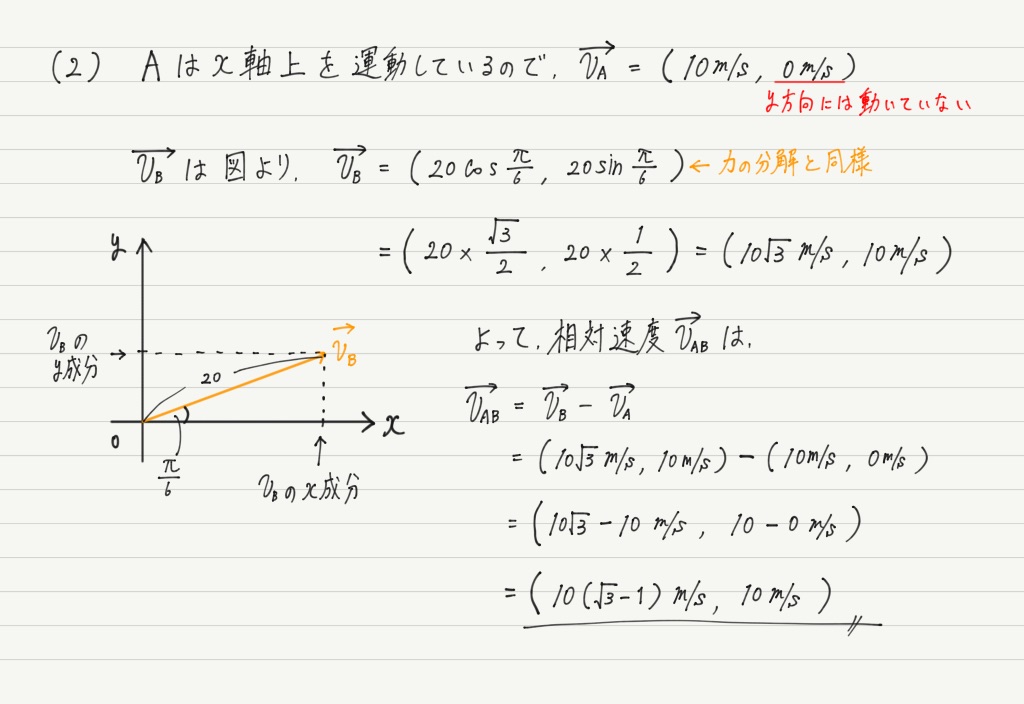 (2) Aはx軸上を運動しているので, →v_A = (10m/s, 0m/s)
y方向には動いていない
→v_B は図より, →v_B = (20cos π/6, 20sin π/6) ← 力の分解と同様
= (20 × √3/2, 20 × 1/2) = (10√3 m/s, 10m/s)
y
v_Bの
y成分 →
20
→v_B
0
x
π/6
↑
v_Bのx成分
よって, 相対速度 →v_AB は,
→v_AB = →v_B − →v_A
= (10√3 m/s, 10m/s) − (10m/s, 0m/s)
= (10√3 − 10 m/s, 10 − 0 m/s)
= (10(√3−1) m/s, 10 m/s)